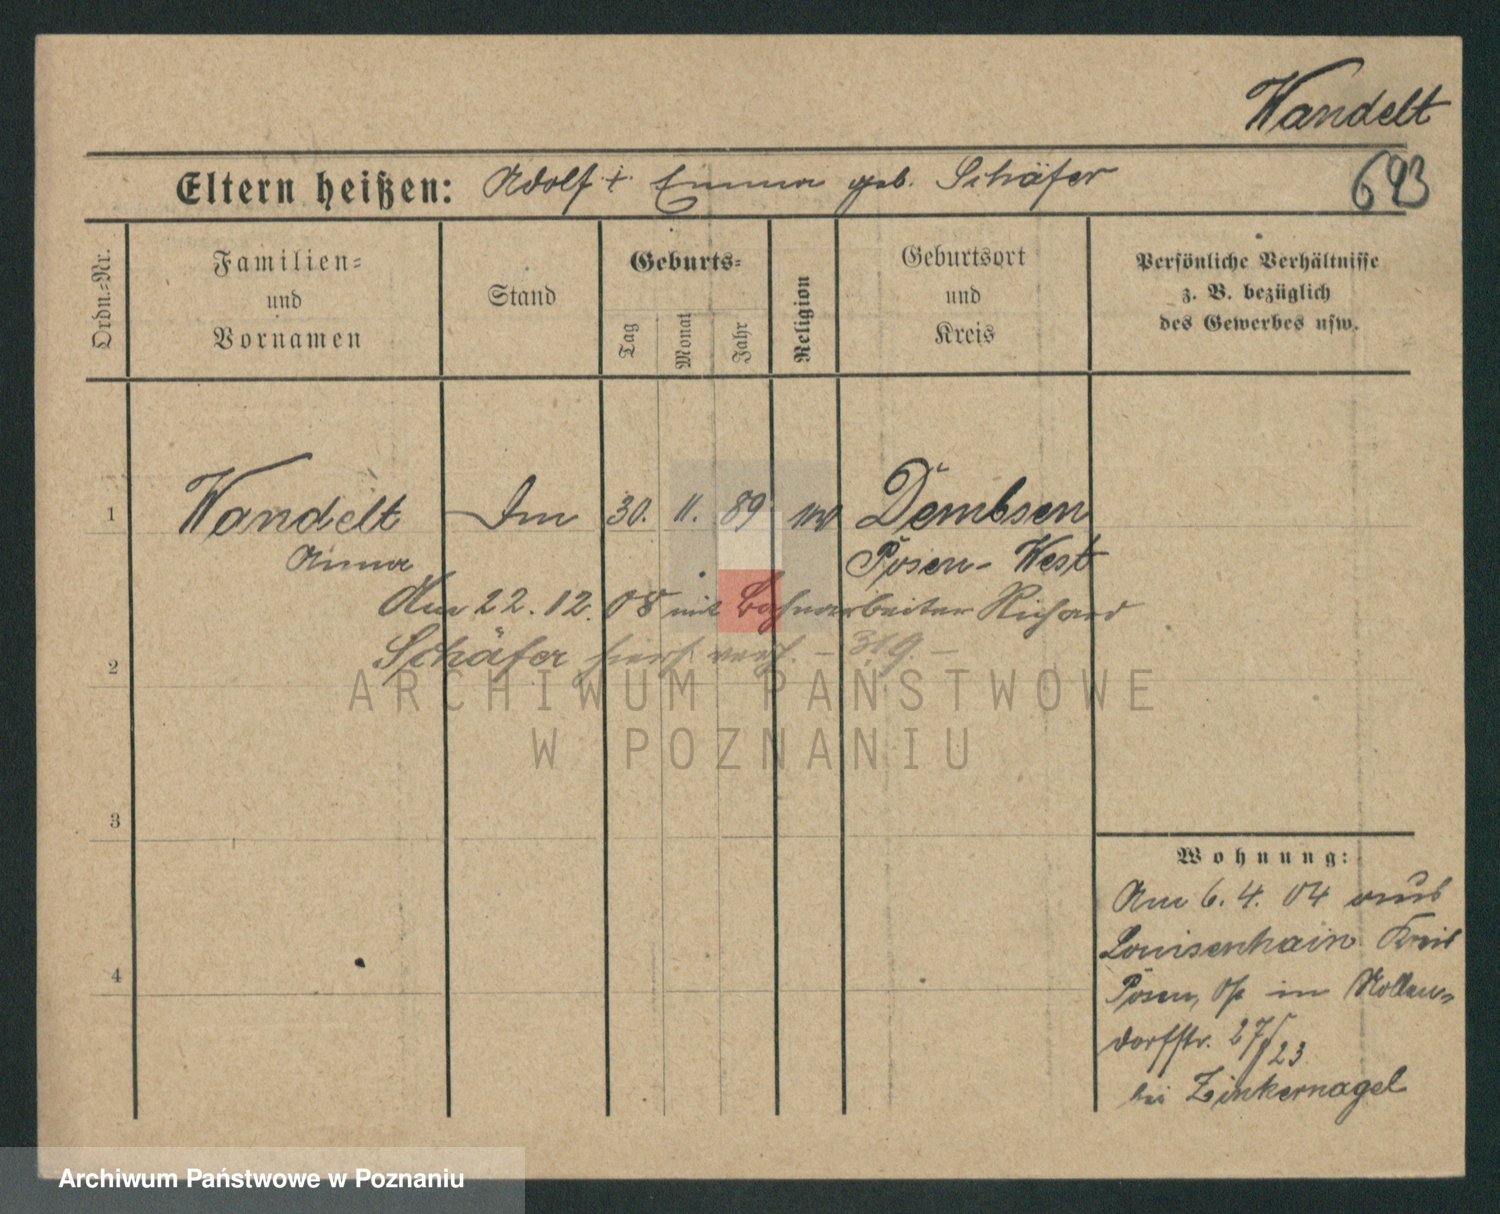 Wandelt
Eltern heißen: Adolf + Emma geb. Schäfer
693
Ordn.=Nr.
Familien=
und
Vornamen
Stand
Geburts=
Tag
Monat
Jahr
Religion
Geburtsort
und
Kreis
Persönliche Verhältnisse
z. B. bezüglich
des Gewerbes usw.
1 Wandelt 30. 11. 89 Dembsen
Anna Posen- West
Am 22. 12. 08 mit Bahnarbeiter Richard
Schäfer hiers. verh. – 319. –
2
ARCHIWUM PAŃSTWOWE
W POZNANIU
3
4
Wohnung:
Am 6. 4. 04 aus
Louisenhain Kreis
Posen, in Nollen=
dorfstr. 27/
23
bei Zinkernagel
Archiwum Państwowe w Poznaniu